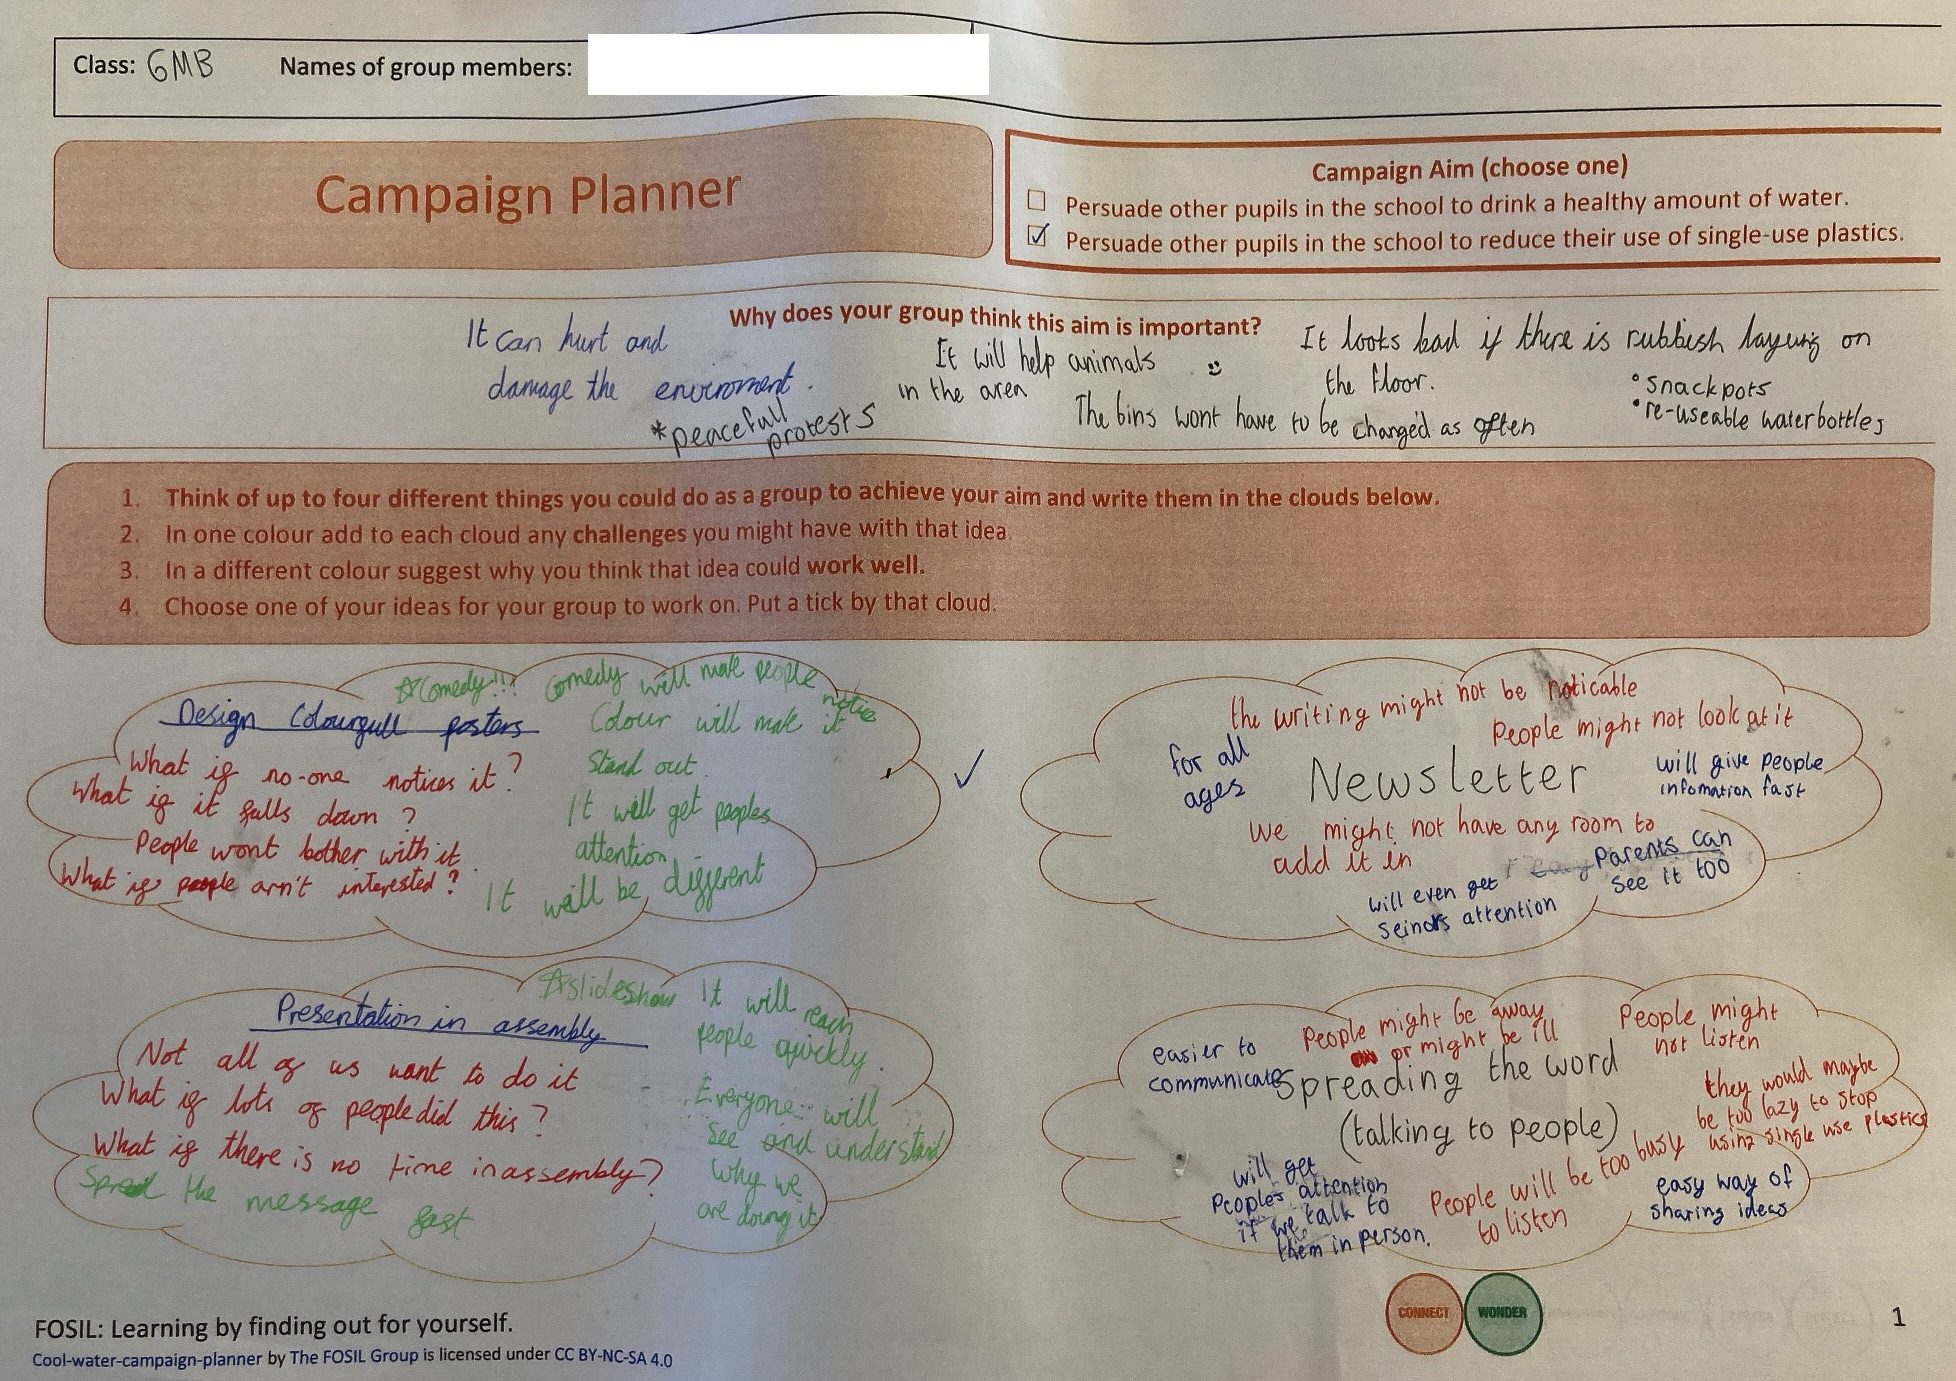 Class: 6MB Names of group members:
Campaign Planner
Campaign Aim (choose one)
☐ Persuade other pupils in the school to drink a healthy amount of water.
☑ Persuade other pupils in the school to reduce their use of single-use plastics.
Why does your group think this aim is important?
It can hurt and
damage the enviroment.
*peacefull
protests
It will help animals
in the area
The bins wont have to be changed as often
It looks bad if there is rubbish laying on
the floor.
• snackpots
• re-useable waterbottles
1. Think of up to four different things you could do as a group to achieve your aim and write them in the clouds below.
2. In one colour add to each cloud any challenges you might have with that idea.
3. In a different colour suggest why you think that idea could work well.
4. Choose one of your ideas for your group to work on. Put a tick by that cloud.
☆Comedy!!! Comedy will make people notice it
Design Colourgull posters
Colour will make
Stand out.
What if no-one notices it?
What if it falls down?
People wont bother with it.
What if people arn't interested?
It will get peoples
attention
It will be different
✓
the writing might not be noticable
People might not look at it
for all
ages
Newsletter
will give people
infomation fast
we might not have any room to
add it in
Parents can
see it too
will even get
Seinors attention
☆slideshow
Presentation in assembly
It will reach
people quickly.
Not all of us want to do it
What if lots of people did this?
What if there is no time in assembly?
Everyone will
see and understand
why we
are doing it
Spread the message fast
People might be away
or might be ill
People might
not listen
easier to
communicate
Spreading the word
(talking to people)
they would maybe
be too lazy to stop
using single use plastics
will get
Peoples attention
if we talk to
them in person.
People will be too busy
to listen
easy way of
sharing ideas
CONNECT
WONDER
FOSIL: Learning by finding out for yourself.
Cool-water-campaign-planner by The FOSIL Group is licensed under CC BY-NC-SA 4.0
1